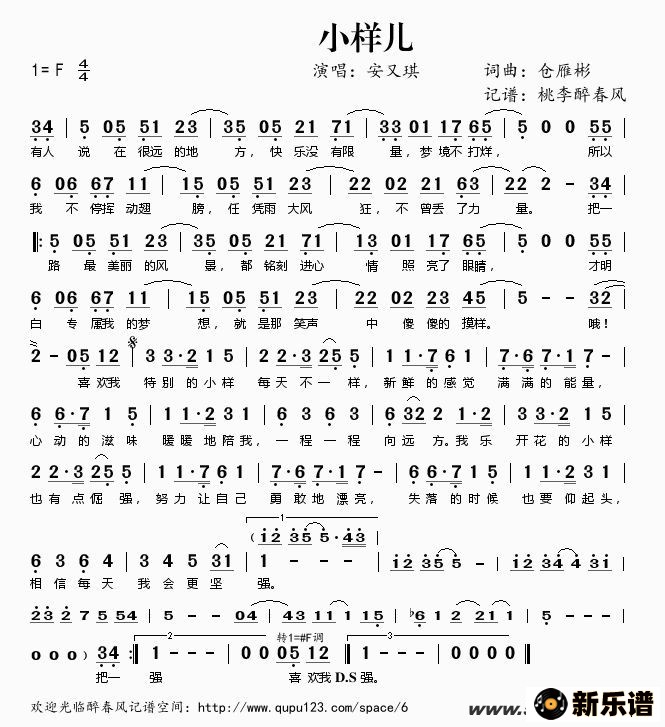 小样儿
1=F 4/4 演唱：安又琪 词曲：仓雁彬
记谱：桃李醉春风
34 | 5 05 51 23 | 35 05 21 71 | 33 01 17 65 | 5 0 0 55 |
有人 说 在 很远 的地 方，快 乐没 有限 量，梦 境不 打烊， 所以
6 06 67 11 | 15 05 51 23 | 22 02 21 63 | 22 2 - 34 |
我 不 停挥 动翅 膀，任 凭雨 大风 狂，不 曾丢 了力 量。 把一
‖: 5 05 51 23 | 35 05 21 71 | 13 01 17 65 | 5 0 0 55 |
路 最 美丽 的风 景，都 铭刻 进心 情 照 亮了 眼睛， 才明
6 06 67 11 | 15 05 51 23 | 22 02 23 45 | 5 - - 32 |
白 专 属我 的梦 想，就 是那 笑声 中 傻 傻的 摸样。 哦！
2 - 05 12 | 3 3·2 1 5 | 2 2·3 25 5 | 1 1·7 6 1 | 5·6 7·1 5 - |
喜 欢我 特 别 的 小 样 每 天 不 一 样， 新 鲜 的 感 觉 满 满 的 能 量，
6 6·7 1 5 | 1 1·2 3 1 | 6 3 6 3 | 6 32 2 1·2 | 3 3·2 1 5 |
心 动 的 滋 味 暖 暖 地 陪 我，一 程 一 程 向 远 方。我 乐 开 花 的 小 样
2 2·3 25 5 | 1 1·7 6 1 | 5·6 7·1 5 - | 6 6·7 1 5 | 1 1·2 3 1 |
也 有 点 倔 强，努 力 让 自 己 勇 敢 地 漂 亮， 失 落 的 时 候 也 要 仰 起 头，
1
(12 35 5·43
6 3 6 4 | 3 4 5 31 | 1 - - - | 12 35 5 - | 12 34 4 31 |
相 信 每 天 我 会 更 坚 强。
23 2 7 5 54 | 5 - - 04 | 43 11 1 15 | ♭6 1 2 21 | 5 - - - |
2 转1=#F调 3
0 0 0) 34 :‖ 1 - - - | 0 0 05 12 | 1 - - - | 0 0 0 0 ‖
把一 强 喜 欢我 D.S 强。
欢迎光临醉春风记谱空间：http://www.qupu123.com/space/6
www.s
新乐谱